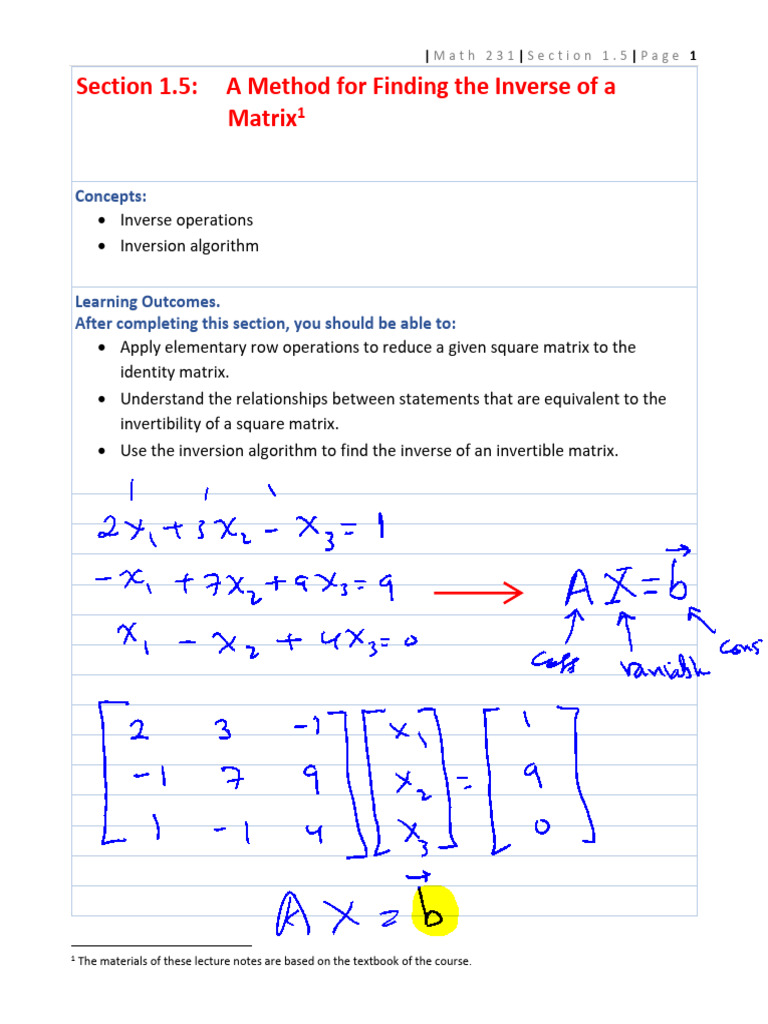 |Math 231|Section 1.5|Page 1
Section 1.5: A Method for Finding the Inverse of a
Matrix¹
Concepts:
• Inverse operations
• Inversion algorithm
Learning Outcomes.
After completing this section, you should be able to:
• Apply elementary row operations to reduce a given square matrix to the
identity matrix.
• Understand the relationships between statements that are equivalent to the
invertibility of a square matrix.
• Use the inversion algorithm to find the inverse of an invertible matrix.
2x₁ + 3x₂ - x₃ = 1
-x₁ + 7x₂ + 9x₃ = 9
x₁ - x₂ + 4x₃ = 0
A X = b⃗
cons
variable
[2 3 -1] [x₁] [1]
[-1 7 9] [x₂] = [9]
[1 -1 4] [x₃] [0]
A X = b⃗
¹ The materials of these lecture notes are based on the textbook of the course.